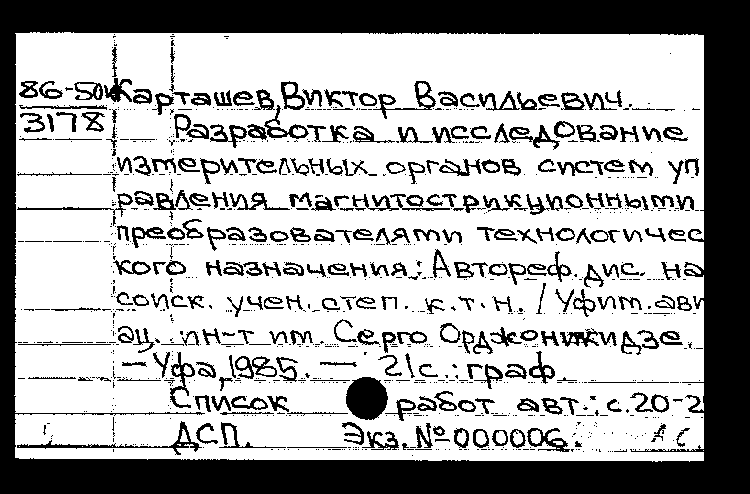 86-50и Карташев, Виктор Васильевич.
3178 Разработка и исследование
измерительных органов систем уп
равления магнитострикционными
преобразователями технологичес
кого назначения: Автореф. дис. на
соиск. учен. степ. к.т.н. / Уфим. ави
ац. ин-т им. Серго Орджоникидзе.
— Уфа, 1985. — 21с.: граф.
Список работ авт.: с.20-2
ДСП. Экз. №000006.